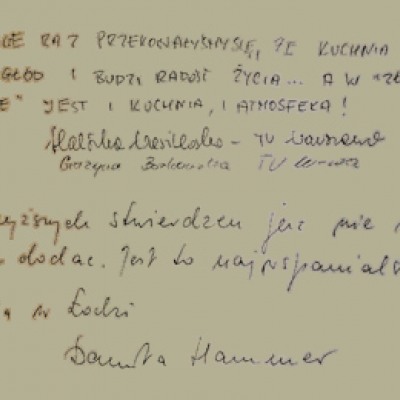 RAZ PRZEKONAŁYŚMY SIĘ, ŻE KUCHNIA
GŁÓD I BUDZI RADOŚĆ ŻYCIA... A W
JEST I KUCHNIA, I ATMOSFERA!
TV
Grażyna TV
stwierdzeń już nie
dodać. Jest to najwspanial
w Łodzi
Danuta Hammer